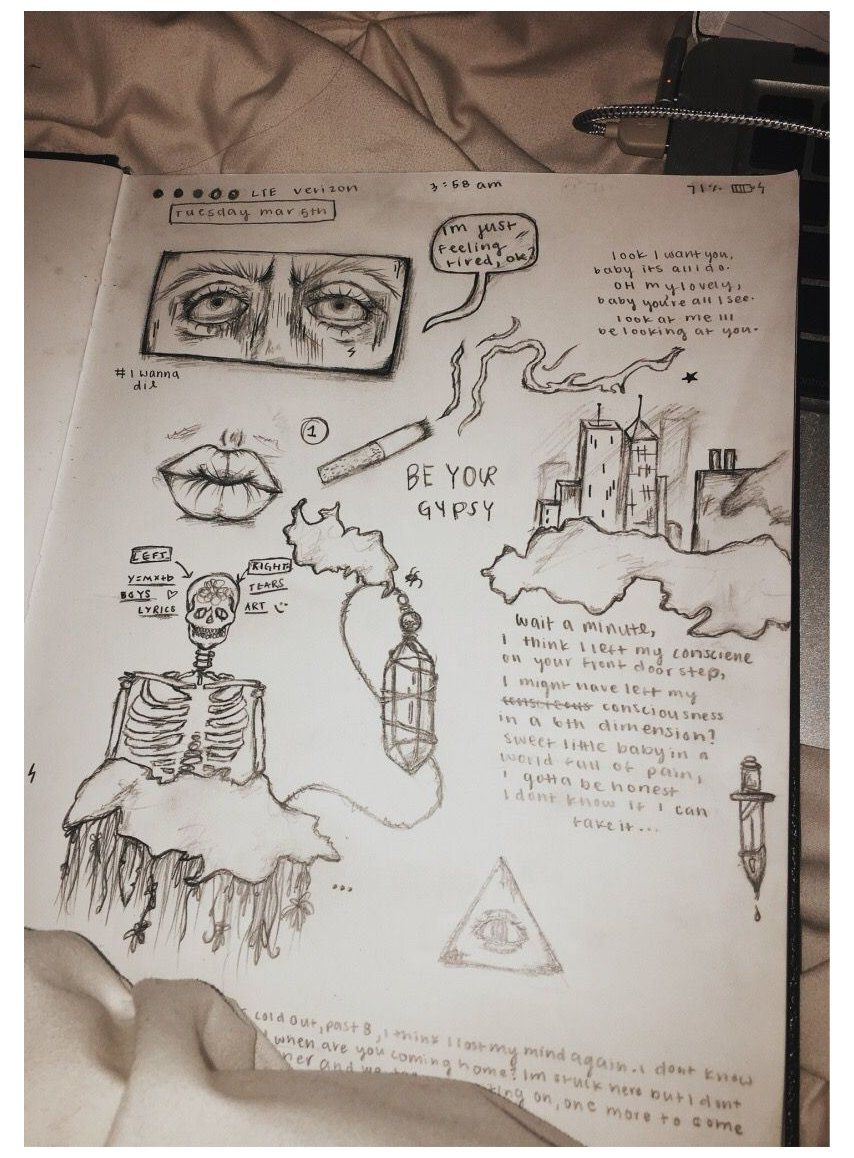 LTE verizon
3:58 am
71%
Tuesday mar 5th
Im just
feeling
tired, ok?
look I want you,
baby its all I do.
OH my lovely,
baby you're all I see.
look at me Ill
be looking at you.
#I wanna
die
1
BE YOUR
GYPSY
LEFT
y=mx+b
BOYS
LYRICS
RIGHT
TEARS
ART
wait a minute,
I think I left my consciene
on your front door step,
I might have left my
consciousness
in a 6th dimension?
sweet little baby in a
world full of pain,
I gotta be honest
I dont know if I can
take it...
...
cold out, past 8, I think I lost my mind again. I dont know
when are you coming home? Im stuck here but I dont
and
on, one more to come